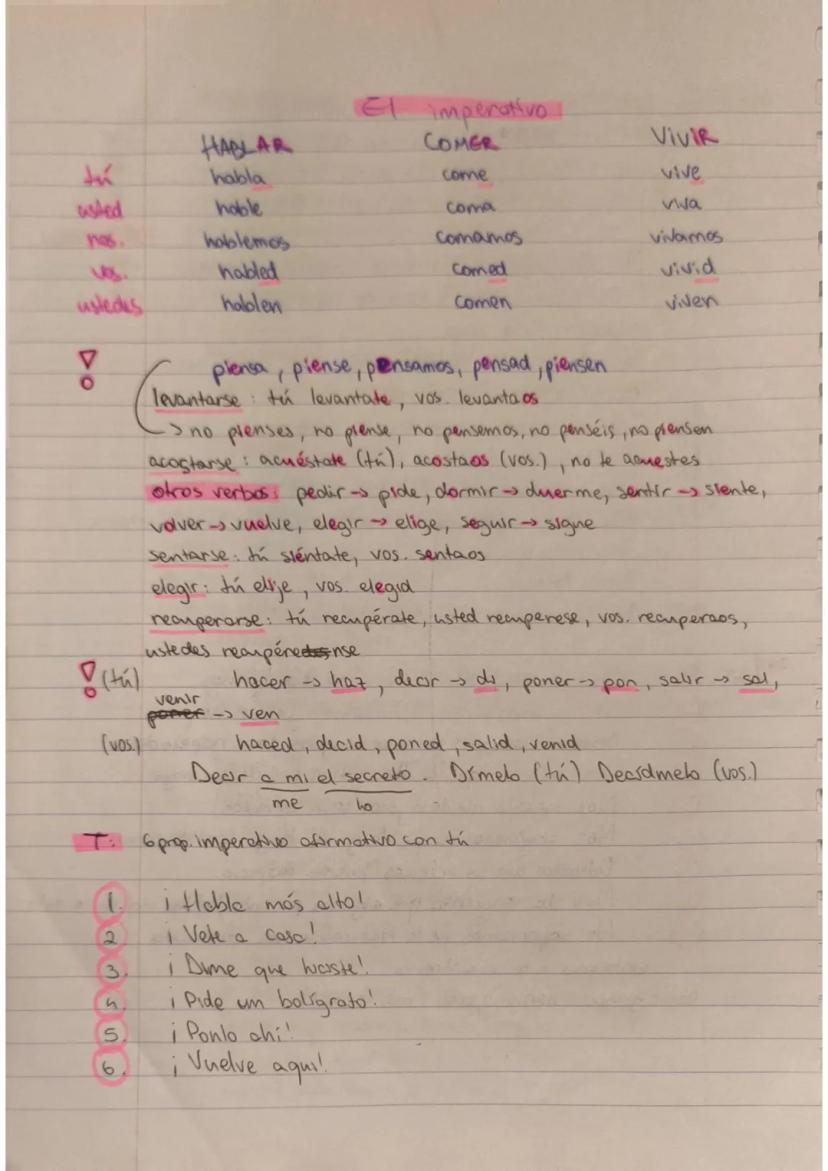 El imperativo
HABLAR COMER VIVIR
tú habla come vive
usted hable coma viva
nos. hablemos comamos vivamos
vos. hablad comed vivid
ustedes hablen comen viven
! piensa, piense, pensamos, pensad, piensen
levantarse: tú levantate, vos. levantaos
-> no pienses, no piense, no pensemos, no penséis, no piensen
acostarse: acuéstate (tú), acostaos (vos.), no te acuestes
otros verbos: pedir -> pide, dormir -> duerme, sentir -> siente,
volver -> vuelve, elegir -> elige, seguir -> sigue
sentarse: tú siéntate, vos. sentaos
elegir: tú elije, vos. elegid
recuperarse: tú recupérate, usted recuperese, vos. recuperaos,
ustedes recupérense
! (tú) hacer -> haz, decir -> di, poner -> pon, salir -> sal,
venir
poner -> ven
(vos.) haced, decid, poned, salid, venid
Decir a mi el secreto. Dímelo (tú) Decídmelo (vos.)
me lo
T: 6 prop. imperativo afirmativo con tú
1. ¡Habla más alto!
2 ¡Vete a casa!
3. ¡Dime que hiciste!
4. ¡Pide un bolígrafo!
5. ¡Ponlo ahí!
6. ¡Vuelve aquí!